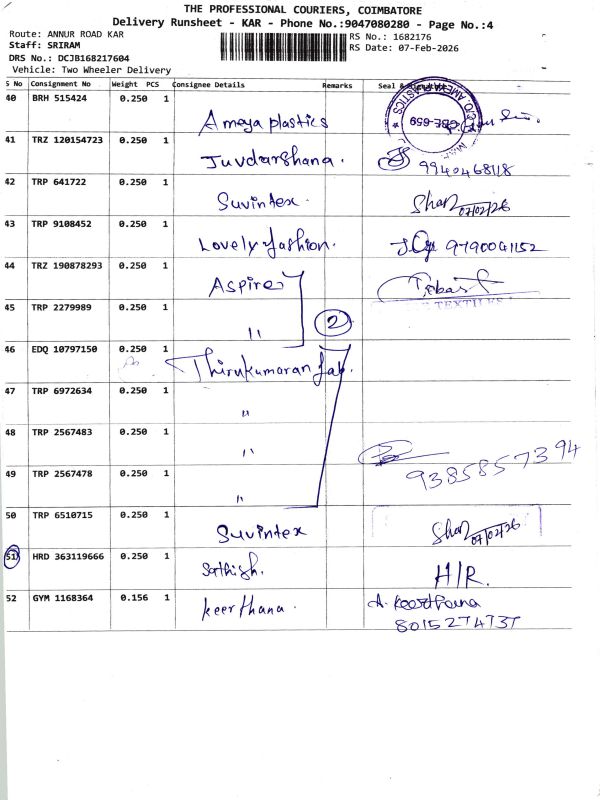 THE PROFESSIONAL COURIERS, COIMBATORE
Delivery Runsheet - KAR - Phone No.:9047080280 - Page No.:4
Route: ANNUR ROAD KAR
RS No.: 1682176
Staff: SRIRAM
RS Date: 07-Feb-2026
DRS No.: DCJB168217604
Vehicle: Two Wheeler Delivery
S No Consignment No Weight PCS Consignee Details Remarks Seal &
40 BRH 515424 0.250 1 Ameya plastics
41 TRZ 120154723 0.250 1 Juvdarshana. 9940468118
42 TRP 641722 0.250 1 Suvintex. Shan 07/02/26
43 TRP 9108452 0.250 1 Lovely fashion. 9790041152
44 TRZ 190878293 0.250 1 Aspire
TEXTILES
45 TRP 2279989 0.250 1 "
2
46 EDQ 10797150 0.250 1 Thirukumaran fab.
47 TRP 6972634 0.250 1 "
48 TRP 2567483 0.250 1 "
9385857394
49 TRP 2567478 0.250 1 "
50 TRP 6510715 0.250 1 Suvintex Shan 07/02/26
51 HRD 363119666 0.250 1 Sathish. H/R.
52 GYM 1168364 0.156 1 keerthana. A. Keerthana
8015274737